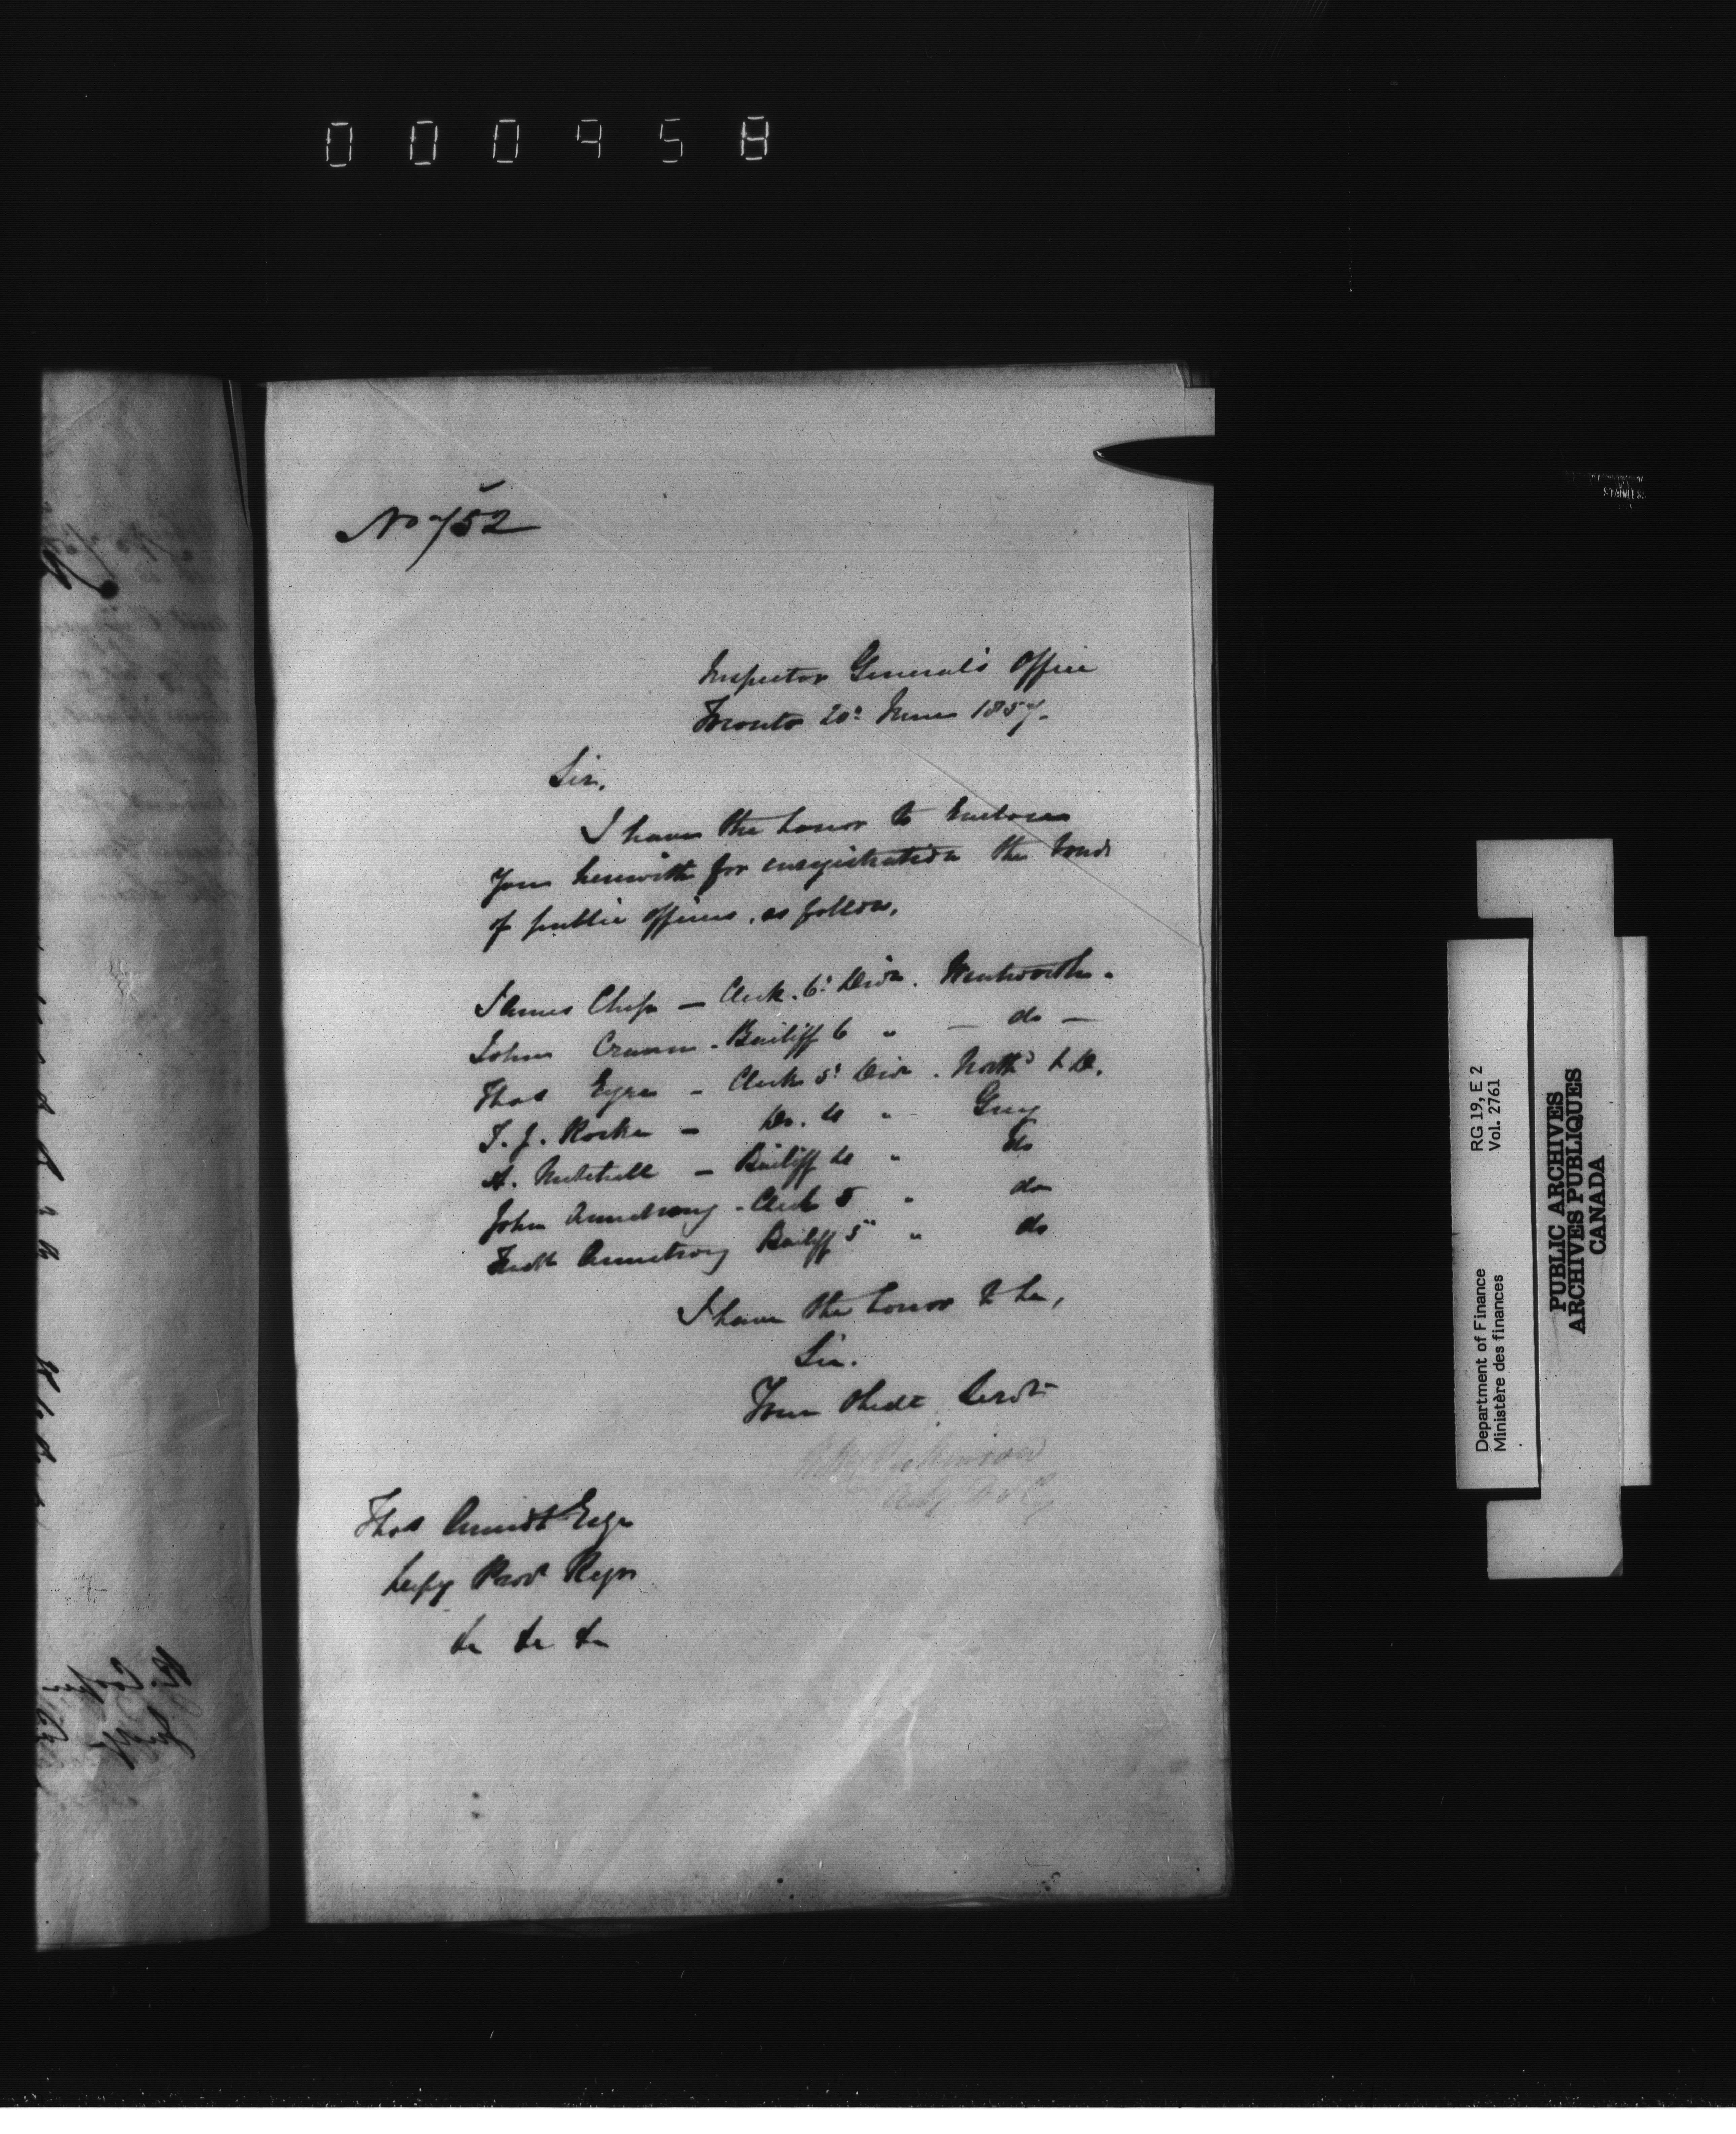 000958
No 752
Inspector General's Office
Toronto 20th June 1857.
Sir,
I have the honor to Enclose
you herewith for enregistration the bonds
of public officers, as follows,
James Chep — Clerk. 6th Divn. Wentworth.
John Cramm - Bailiff 6 " — do —
Thos Eyre - Clerk 5th Divn. North'd & D.
T. J. Rorke — Do. do " Grey
A. Mitchell — Bailiff do " do
John Armstrong - Clerk 5 " do
Fredk Armstrong Bailiff 5 " do
I have the honor to be,
Sir.
Your Obedt Servt
Dickinson
Thos Esqr
Depy Provl Regr
&c &c &c
Department of Finance RG 19, E 2
Ministère des finances Vol. 2761
PUBLIC ARCHIVES
ARCHIVES PUBLIQUES
CANADA